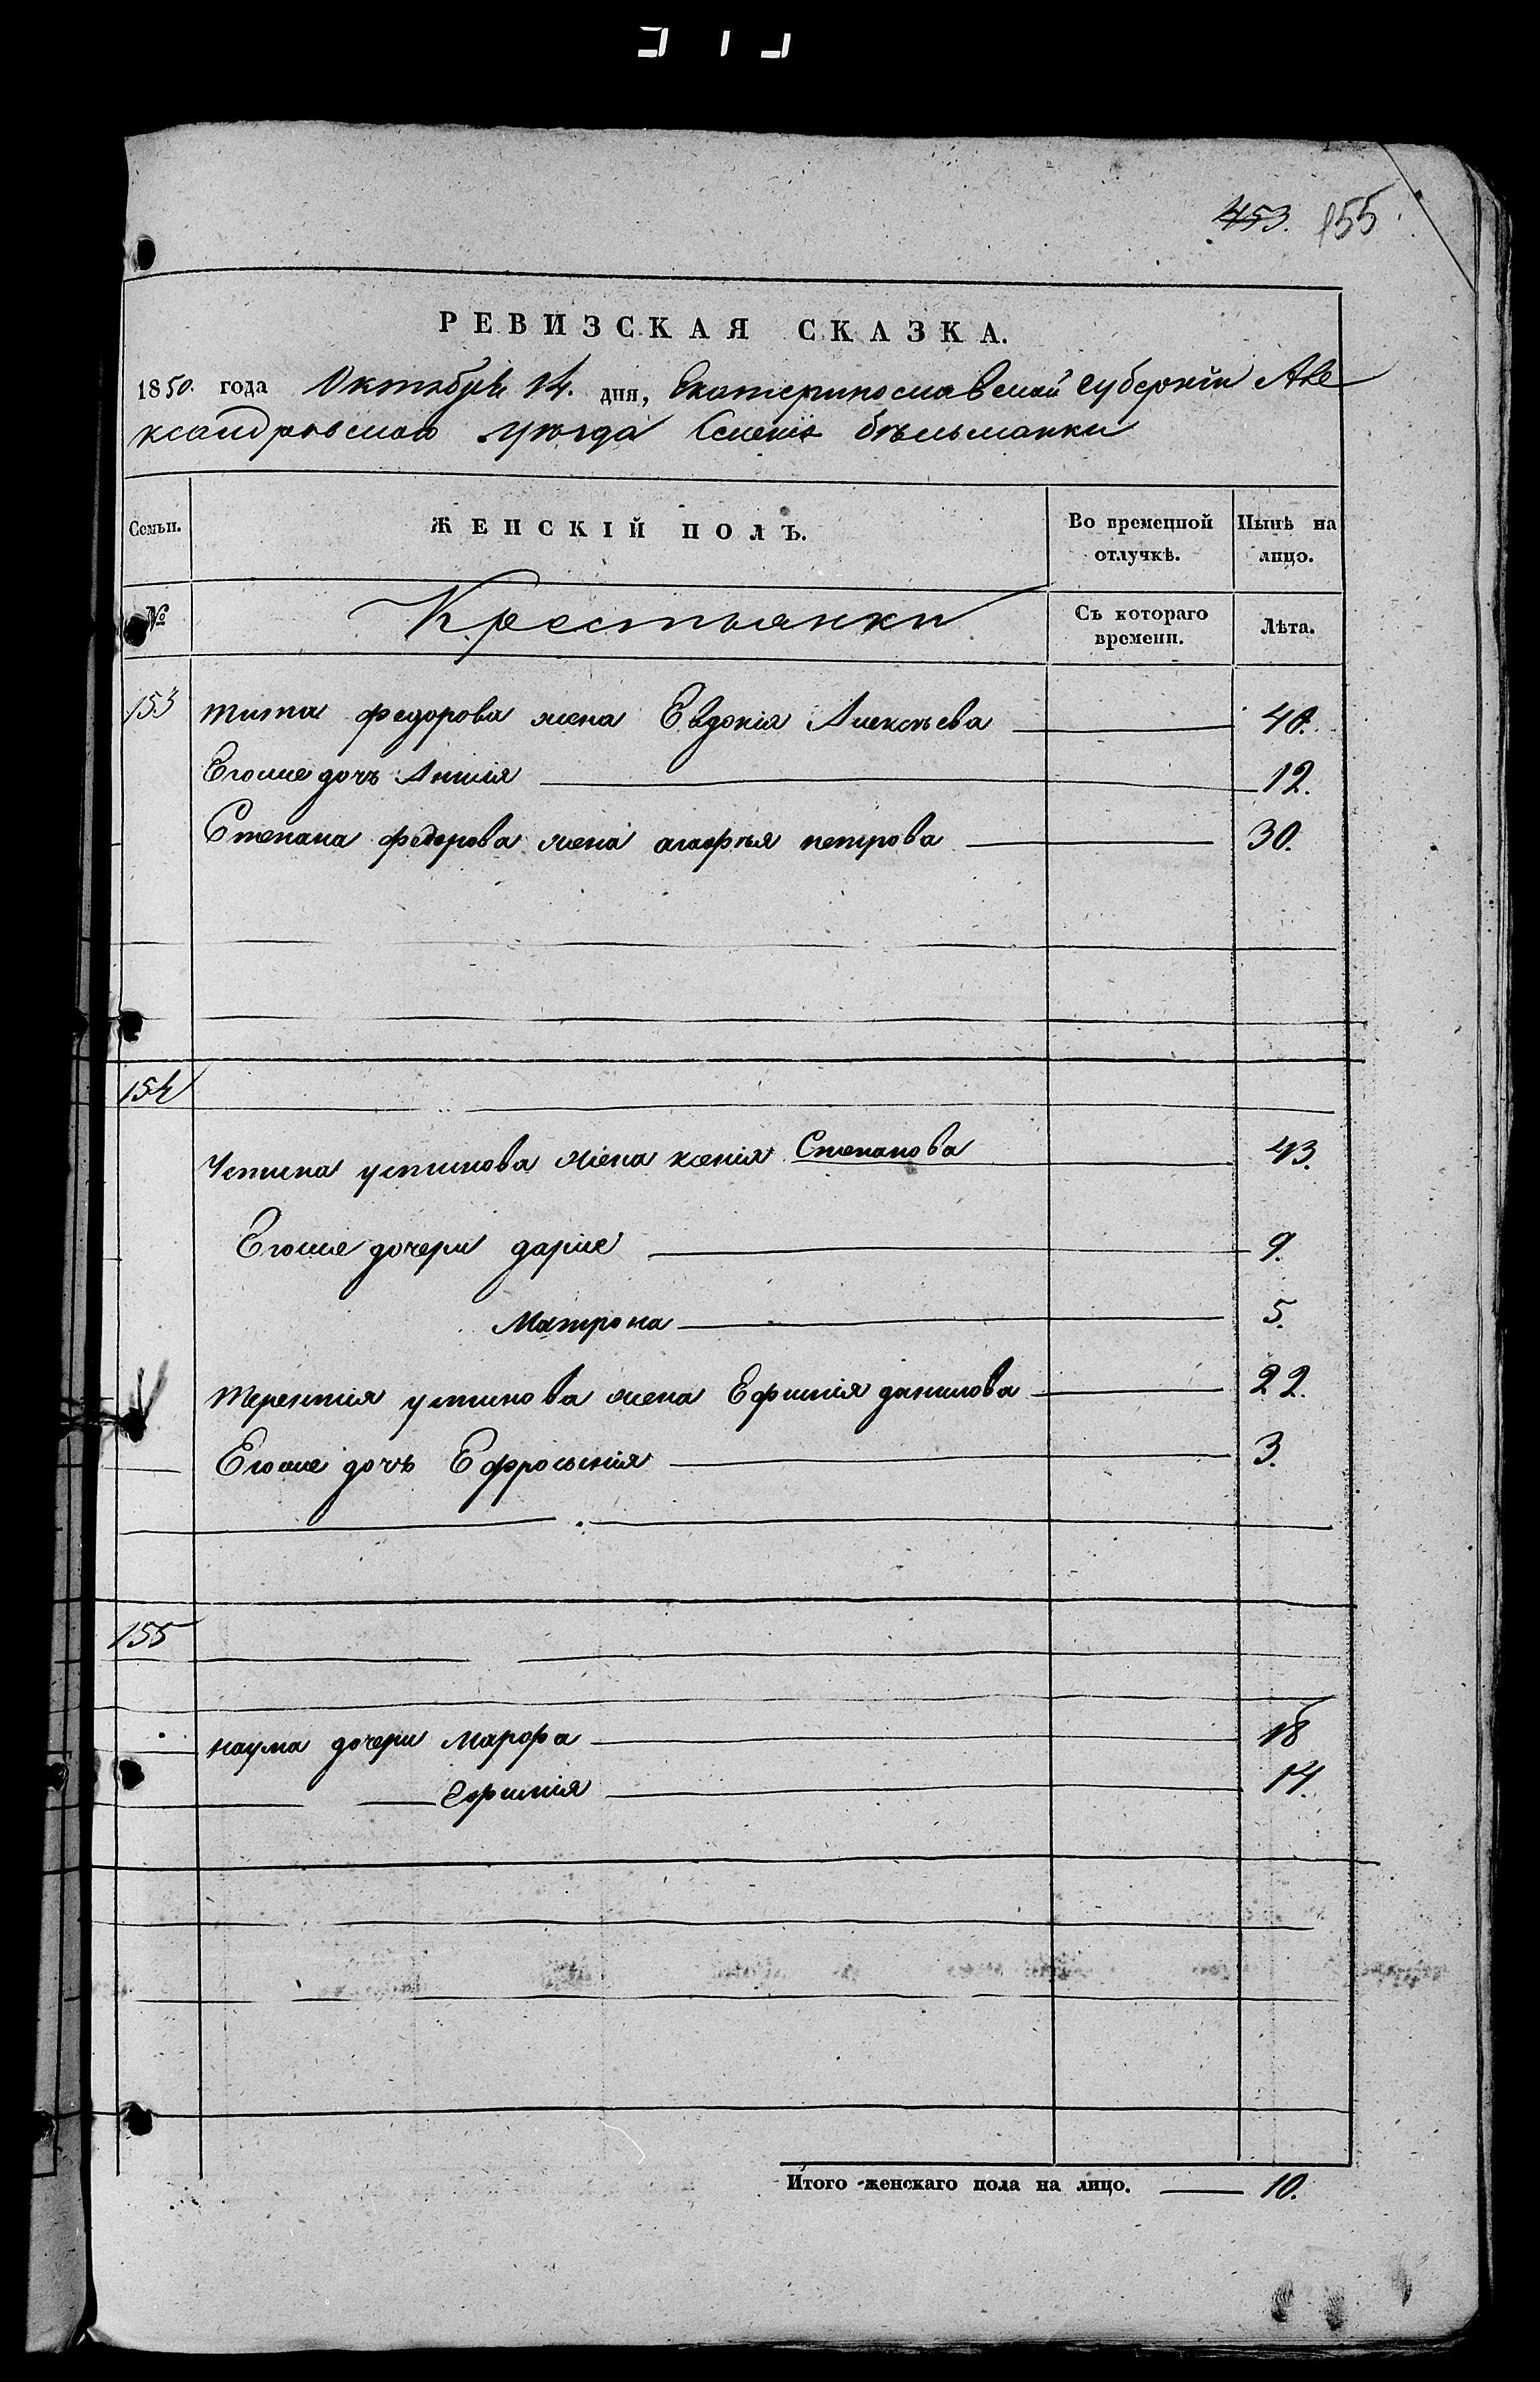 453. 155
РЕВИЗСКАЯ СКАЗКА.
1850. года Октября 14. дня, Екатеринославской губернии Але
ксандровскаго уѣзда Селенія бѣльманки
Семьи. ЖЕНСКІЙ ПОЛЪ. Во временной отлучкѣ. Нынѣ на лицо.
№ Крестьянки Съ котораго времени. Лѣта.
153 тита федорова жена Евдокія Алексѣева 40.
Егоже дочь Анна 12.
Степана федорова жена агафья петрова 30.
154
Устина устинова жена ксенія Степанова 43.
Егоже дочери дарія 9.
Матрона 5.
терентія устинова жена Ефимія данилова 22.
Егоже дочь Ефросинія 3.
155
наума дочери Марфа 18
Ефимія 14.
Итого женскаго пола на лицо. 10.